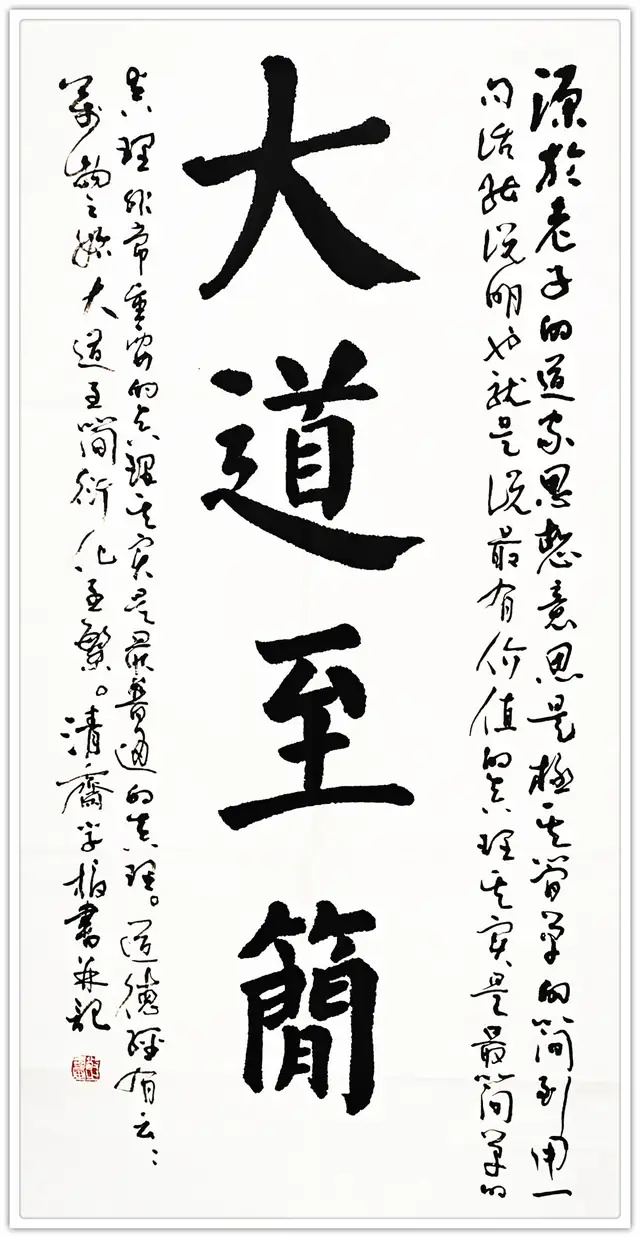 源於老子的道家思想意思是極其簡單的簡到用一
句話能说明也就是说最有价值的真理其实是最簡單的
大道至簡
真理非常重要的真理其实是最普通的真理。道德經有云：
萬物之始大道至簡衍化至繁。清齋書并記